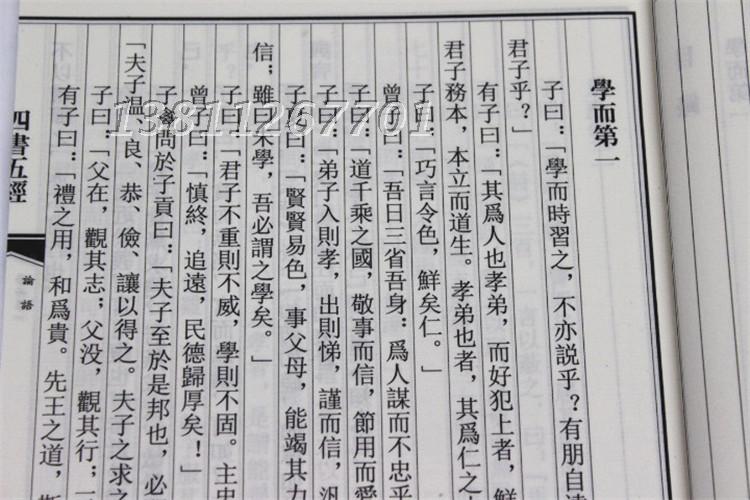 學而第一
子曰：「學而時習之，不亦説乎？有朋自遠
君子乎？」
有子曰：「其爲人也孝弟，而好犯上者，鮮
君子務本，本立而道生。孝弟也者，其爲仁之
子曰：「巧言令色，鮮矣仁。」
曾子曰：「吾日三省吾身：爲人謀而不忠乎
子曰：「道千乘之國，敬事而信，節用而愛
子曰：「弟子入則孝，出則悌，謹而信，汎
子夏曰：「賢賢易色，事父母，能竭其力
信；雖曰未學，吾必謂之學矣。」
子曰：「君子不重則不威，學則不固。主忠
曾子曰：「慎終，追遠，民德歸厚矣！」
子禽問於子貢曰：「夫子至於是邦也，必
「夫子温、良、恭、儉、讓以得之。夫子之求之
子曰：「父在，觀其志；父没，觀其行；
有子曰：「禮之用，和爲貴。先王之道，斯
四書五經
論語
13811267701